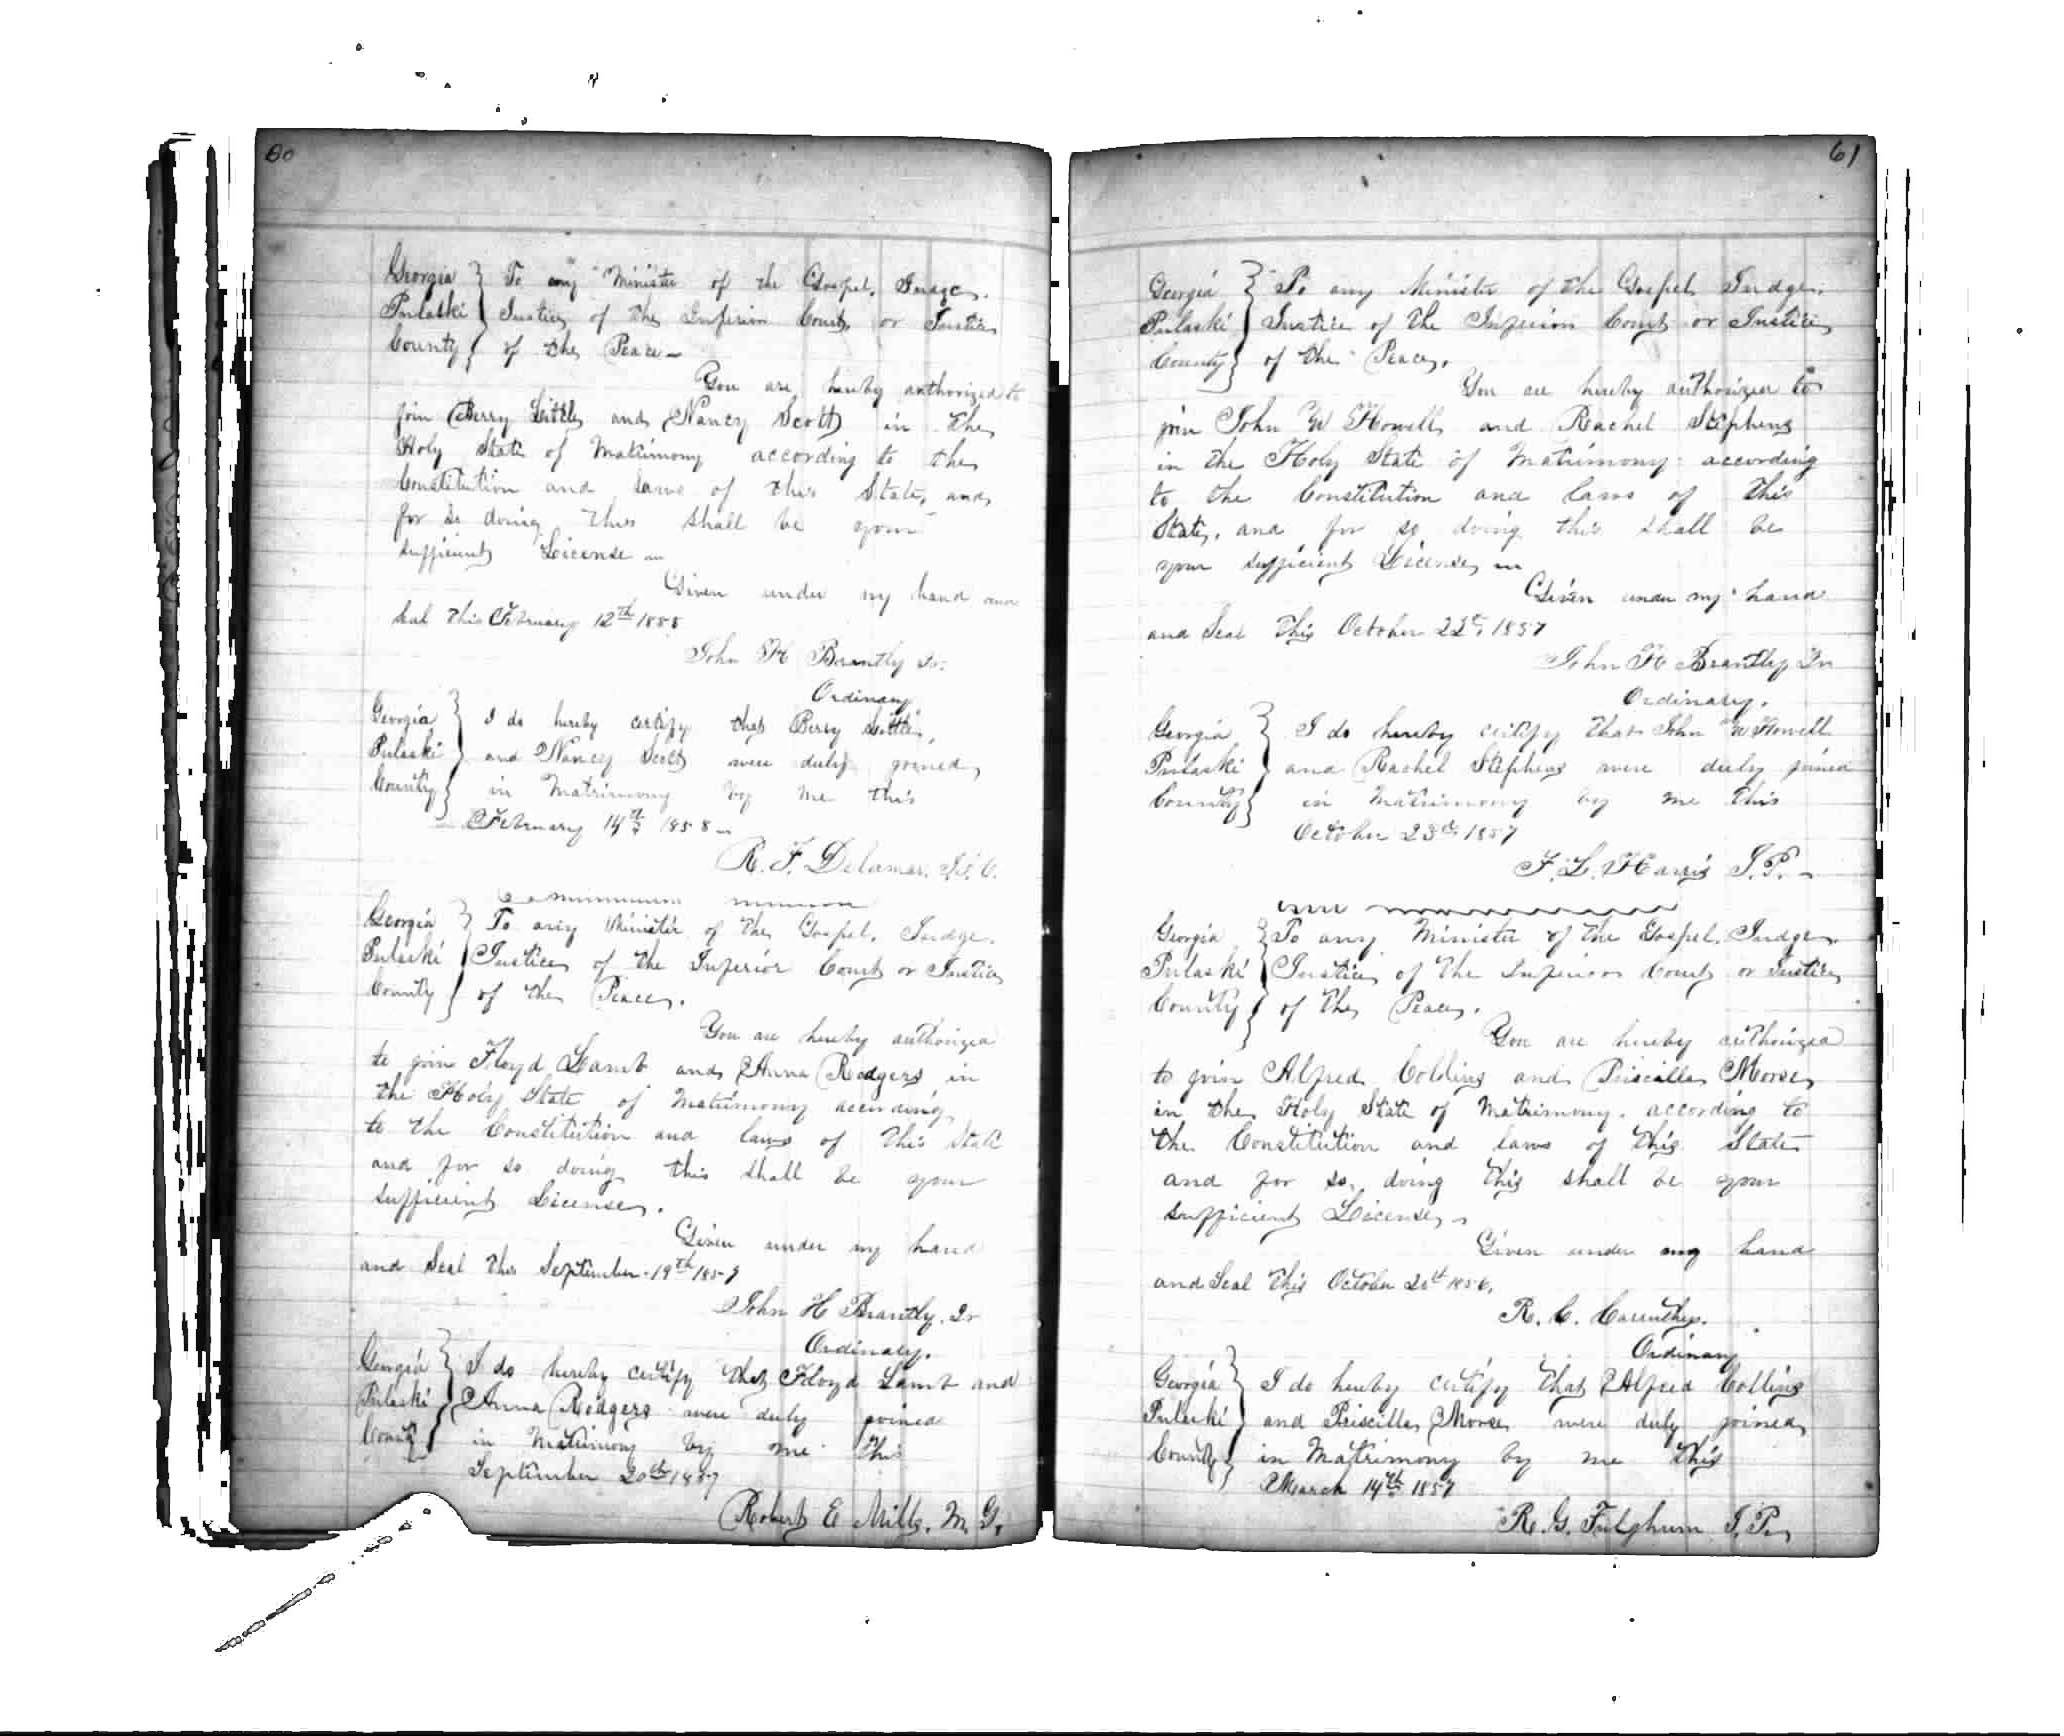 60
Georgia } To any Minister of the Gospel, Judge,
Pulaski } Justice of the Inferior Court, or Justice
County } of the Peace
You are hereby authorized to
join Berry Little and Nancy Scott in the
Holy State of Matrimony according to the
Constitution and laws of this State, and
for so doing this shall be your
sufficient License
Given under my hand and
seal this February 12th 1858
John H Brantly Jr.
Ordinary
Georgia } I do hereby certify that Berry Little,
Pulaski } and Nancy Scott were duly joined
County } in Matrimony by me this
February 14th 1858
R. F. Delamar, J.I.C.
Georgia } To any Minister of the Gospel, Judge,
Pulaski } Justice of the Inferior Court or Justice
County } of the Peace.
You are hereby authorized
to join Floyd Lamb and Anna Rodgers in
the Holy State of Matrimony according
to the Constitution and laws of this State
and for so doing this shall be your
sufficient License.
Given under my hand
and Seal this September 19th 1857
John H Brantly Jr
Ordinary.
Georgia } I do hereby certify that Floyd Lamb and
Pulaski } Anna Rodgers were duly joined
County } in Matrimony by me this
September 20th 1857
Robert E Mills. M. G.
61
Georgia } To any Minister of the Gospel, Judge,
Pulaski } Justice of the Inferior Court or Justice
County } of the Peace.
You are hereby authorized to
join John W Howell and Rachel Stephens
in the Holy State of Matrimony according
to the Constitution and laws of this
State, and for so doing this shall be
your sufficient License
Given under my hand
and Seal this October 22d, 1857
John H Brantly Jr
Ordinary.
Georgia } I do hereby certify that John W Howell
Pulaski } and Rachel Stephens were duly joined
County } in Matrimony by me this
October 23d, 1857
F. L. Harris J. P.
Georgia } To any Minister of the Gospel, Judge,
Pulaski } Justice of the Inferior Court or Justice
County } of the Peace.
You are hereby authorized
to join Alfred Collins and Priscilla Morse
in the Holy State of Matrimony, according to
the Constitution and laws of this State
and for so doing this shall be your
sufficient License
Given under my hand
and Seal this October 1856.
R. C. Caruthers.
Ordinary
Georgia } I do hereby certify that Alfred Collins
Pulaski } and Priscilla Morse were duly joined
County } in Matrimony by me this
March 14th 1857
R. G. Fulghum J. P.